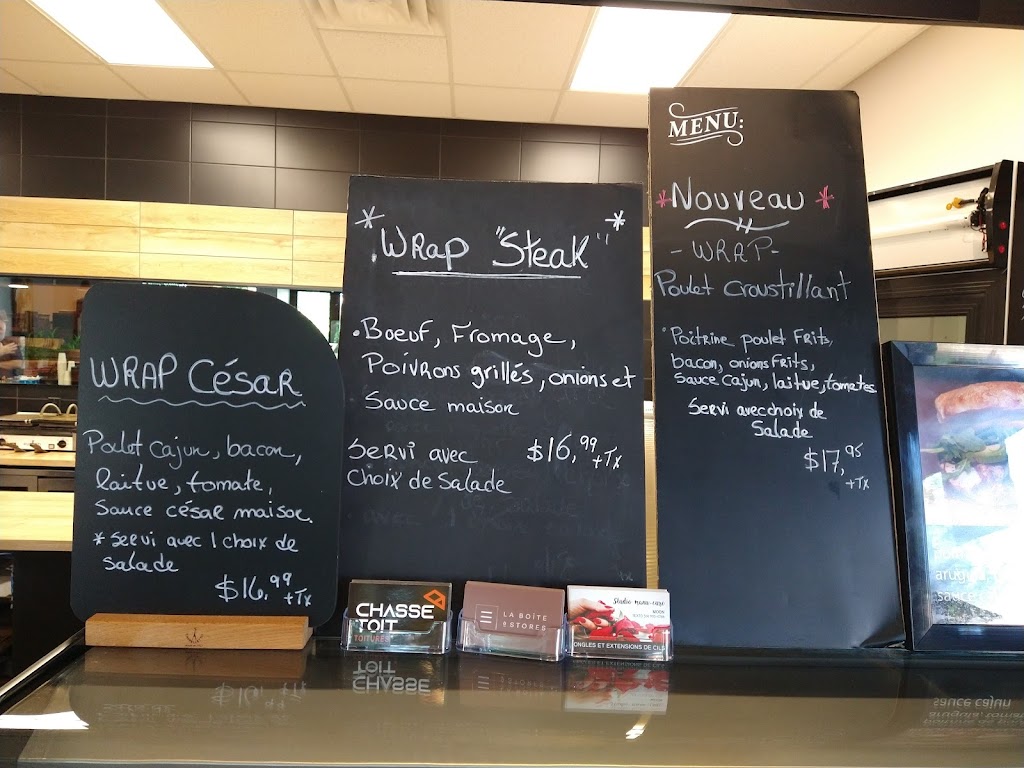 WRAP César
Poulet cajun, bacon,
laitue, tomate,
Sauce césar maison.
* Servi avec 1 choix de
Salade
$16,99
+Tx
* *
WRap "Steak"
• Boeuf, Fromage,
Poivrons grillés, onions et
Sauce maison
Servi avec
Choix de Salade
$16,99
+Tx
MENU:
* Nouveau *
- WRAP -
Poulet croustillant
• Poitrine poulet Frits,
bacon, onions Frits,
Sauce Cajun, laitue, tomates
Servi avec choix de
Salade
$17,95
+Tx
CHASSE
TOIT
TOITURES
LA BOÎTE
STORES
ONGLES ET EXTENSIONS DE CILS
sauce